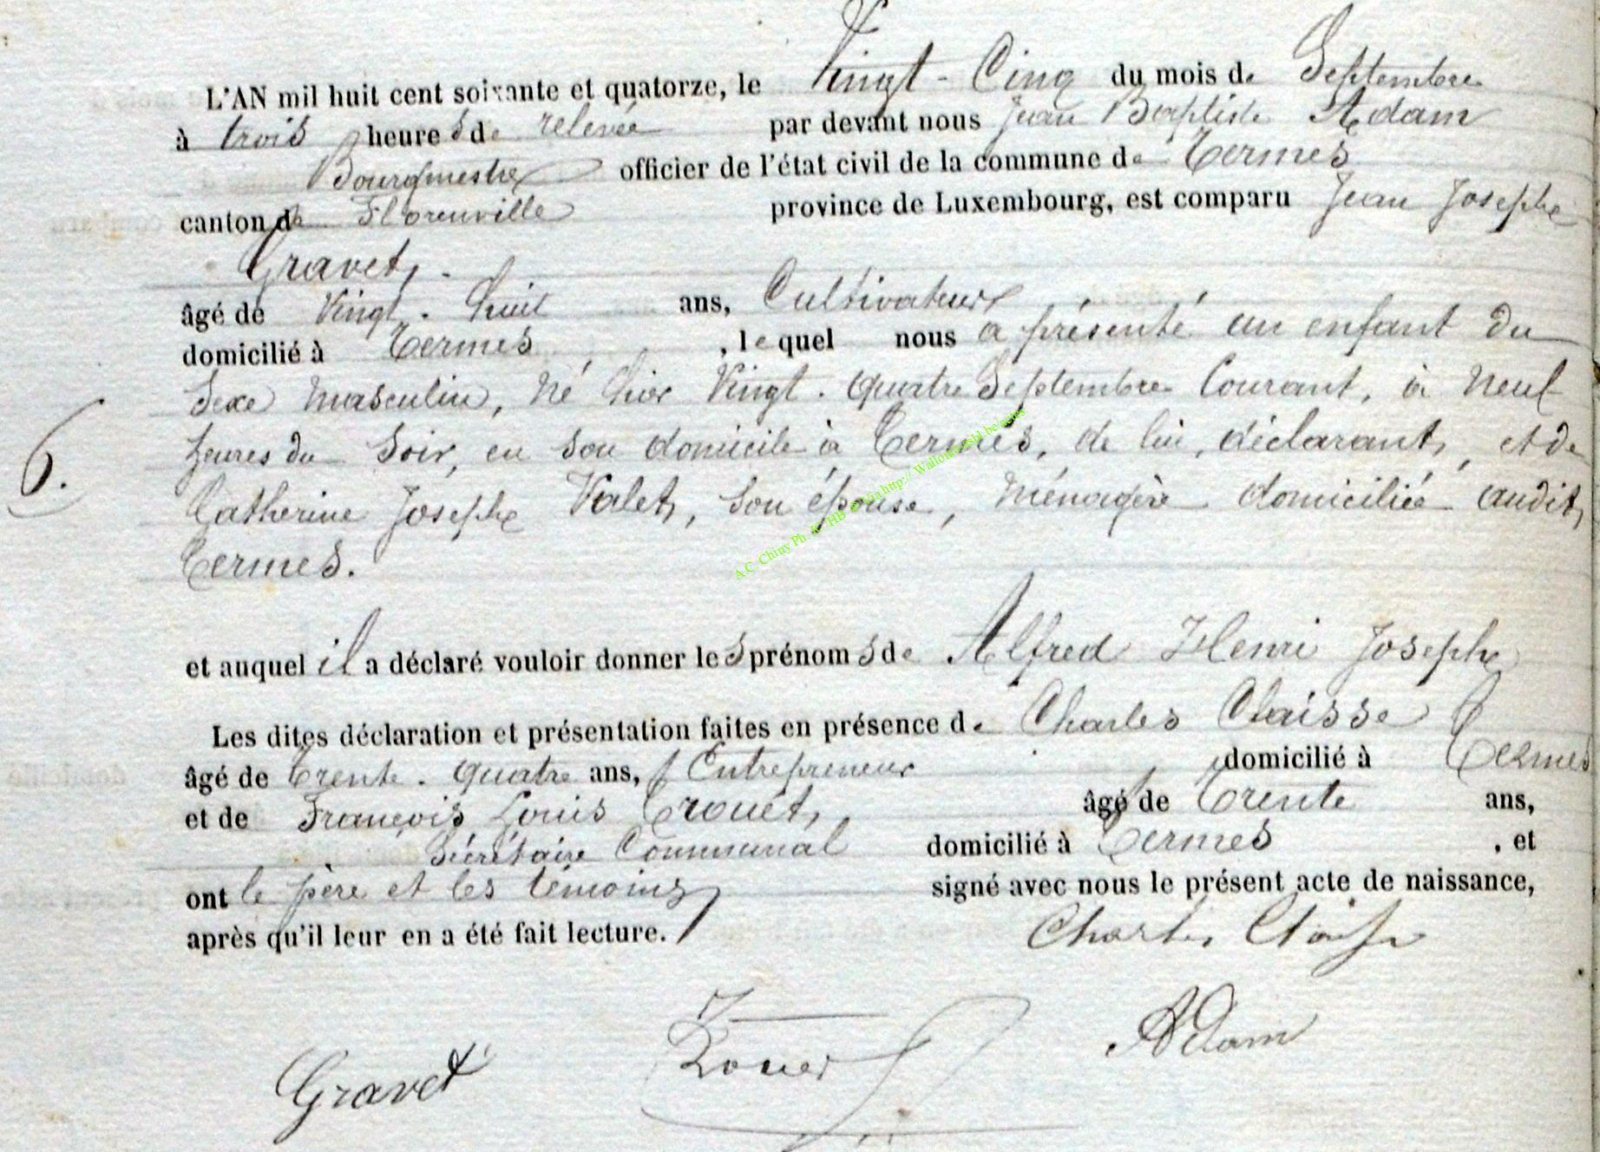 L'AN mil huit cent soixante et quatorze, le Vingt-Cinq du mois de Septembre
à trois heures de relevée par devant nous Jean Baptiste Adam
Bourgmestre officier de l'état civil de la commune de Termes
canton de Florenville province de Luxembourg, est comparu Jean Josephe
Gravet,
âgé de Vingt-huit ans, Cultivateur
domicilié à Termes, lequel nous a présenté un enfant du
Sexe masculin, né hier Vingt-quatre Septembre Courant, à neuf
heures du Soir, en son domicile à Termes, de lui, déclarant, et de
Catherine Josephe Valet, son épouse, Ménagère domiciliée audit,
Termes.
6.
et auquel il a déclaré vouloir donner les prénoms de Alfred Henri Josephe
Les dites déclaration et présentation faites en présence de Charles Claisse
âgé de Trente-quatre ans, Entrepreneur domicilié à Termes
et de François Louis Trouet, âgé de Trente ans,
Sécrétaire Communal domicilié à Termes, et
ont le père et les témoins signé avec nous le présent acte de naissance,
après qu'il leur en a été fait lecture.
Charles Claisse
Adam
Gravet
A.C. Chiny Ph.